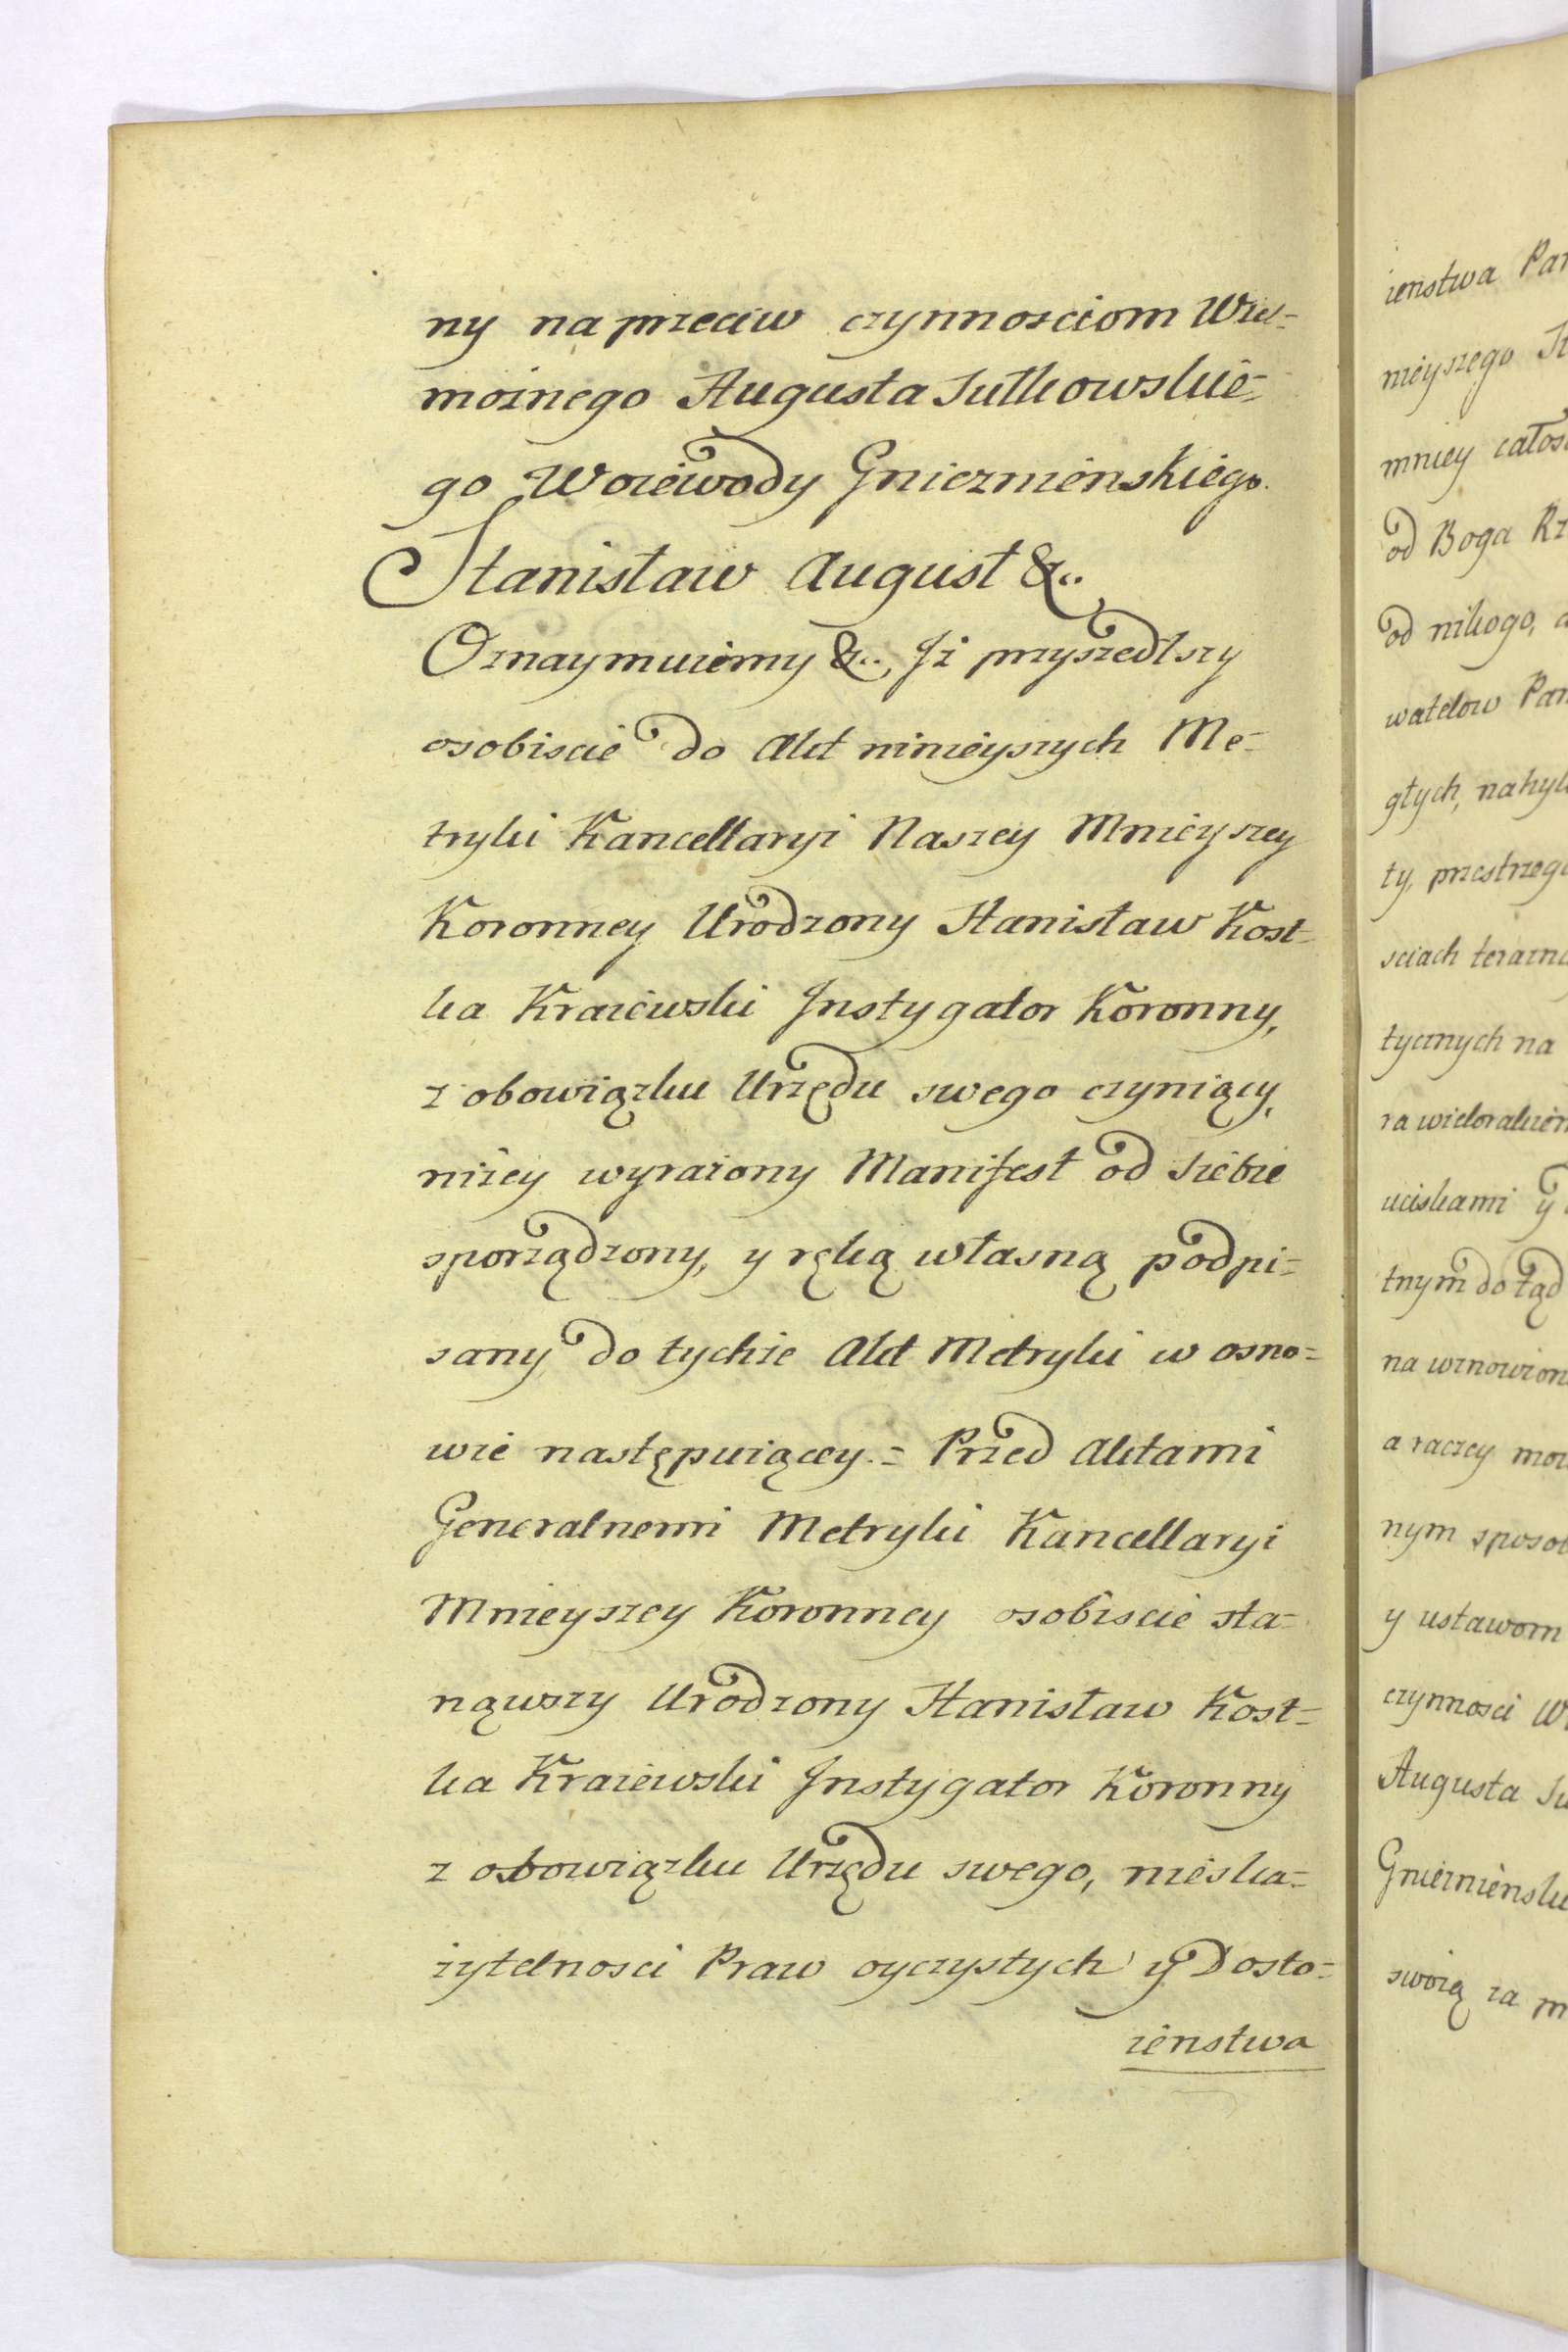 ny na przeciw czynnosciom Wiel=
moznego Augusta Sułkowskie=
go Woiewody Gnieznienskiego.
Stanisław August &..
Oznaymuiemy &.., Iż przyszedłszy
osobiscie do Akt ninieyszych Me=
tryki Kancellaryi Naszey Mnieyszey
Koronney Urodzony Stanisław Kost=
ka Kraiewski Instygator Koronny,
z obowiązku Urzędu swego czyniący,
niżey wyrażony Manifest od siebie
sporządzony, y ręką własną podpi=
sany do tychże Akt Metryki w osno=
wie następuiącey. = Przed Aktami
Generalnemi Metryki Kancellaryi
Mnieyszey Koronney osobiscie sta=
nąwszy Urodzony Stanisław Kost=
ka Kraiewski Instygator Koronny
z obowiązku Urzędu swego, nieska=
zytelnosci Praw oyczystych y Dosto=
ienstwa
ienstwa
nieyszego
mniey
od Boga
od nikogo,
watelow
głych,
ty,
sciach
tycznych na
za
uciskami y
tnym do tąd
na
a raczey
nym
y ustawom
czynnosci
Augusta
swoią za